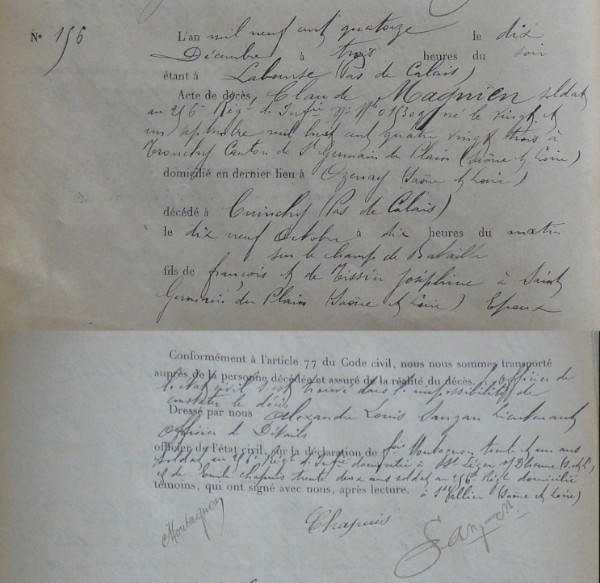 N° 156
L'an mil neuf cent quatorze le dix
Décembre à trois heures du soir
étant à Labourse (Pas de Calais)
Acte de décès, Claude Magnien soldat
au 256e Régt d'Infie né le vingt et
un septembre mil huit cent quatre vingt trois à
Tronchy Canton de St Germain du Plain (Saône et Loire)
domicilié en dernier lieu à Ozenay (Saône et Loire)
décédé à Cuinchy (Pas de Calais)
le dix neuf Octobre à dix heures du matin
sur le champ de Bataille
fils de françois et de Tissier Joséphine à Saint
Germain du Plain (Saône et Loire) Epoux
Conformément à l'article 77 du Code civil, nous nous sommes transporté
auprès de la personne décédée et assuré de la réalité du décès. L'officier de
l'état civil s'est trouvé dans l'impossibilité de
constater le décès
Dressé par nous Alexandre Louis Lieutenant
Officier de Détails
officier de l'état civil, sur la déclaration de Montagnon trente et un ans
soldat au 256e Régt d'Infie domicilié à St Léger s/Dheune
et de Chapuis trente deux ans soldat au 256e Régt domicilié
témoins, qui ont signé avec nous, après lecture. à St Vallier (Saône et Loire)
Montagnon
Chapuis